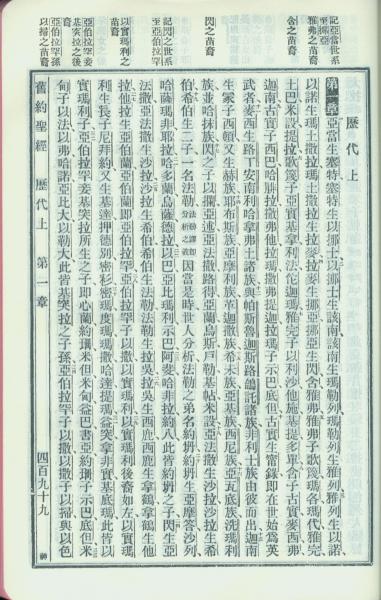 記亞當世系
至挪亞
雅弗之苗裔
含之苗裔
閃之苗裔
記閃之世系
至亞伯拉罕
以實瑪利之
苗裔
亞伯拉罕妾
基突拉之後
裔
亞伯拉罕孫
以掃之苗裔
歷代上
第一章 亞當生塞特塞特生以挪士以挪士生該南該南生瑪勒列瑪勒列生雅列雅列生以諾
以諾生瑪土撒拉瑪土撒拉生拉麥拉麥生挪亞挪亞生閃含雅弗雅弗子歌篾瑪各瑪代雅完
土巴米設提拉歌篾子亞實基拿利法陀迦瑪雅完子以利沙他施基提多單含子古實麥西弗
迦南古實子西巴哈腓拉撒弗他拉瑪撒弗提迦拉瑪子示巴底但古實生甯錄即在世始爲英
武者麥西生路丁安南利哈拿弗土諸族與帕斯魯迦斯路鴿託諸族非利士族由彼而出迦南
生冢子西頓又生赫族耶布斯族亞摩利族革迦撒族希未族亞基族西尼族亞瓦底族洗瑪利
族並哈抹族閃之子以攔亞述亞法撒路得亞蘭烏斯戸勒基帖米設亞法撒生沙拉沙拉生希
伯希伯生二子一名法勒法勒譯卽分析之義因當是時世人分析法勒之弟名約坍約坍生亞摩答沙列
哈薩瑪非耶拉哈多蘭烏薩德拉以巴亞比瑪利示巴阿斐哈非拉約八此皆約坍之子閃生亞
法撒亞法撒生沙拉沙拉生希伯希伯生法勒法勒生拉吳拉吳生西鹿西鹿生拿鶴拿鶴生他
拉他拉生亞伯蘭亞伯蘭即亞伯拉罕亞伯拉罕子以撒以實瑪利以實瑪利後裔如左以實瑪
利生長子尼拜約又生基達押德別密衫密瑪度瑪瑪撒哈達提瑪益突拿非實基底瑪此皆以
實瑪利子亞伯拉罕妾基突拉所生之子即心蘭約珊米但米甸益巴書亞約珊子示巴底但米
甸子以法以弗哈諾亞比大以勒大此皆基突拉之子孫亞伯拉罕子以撒以撒子以掃與以色
舊約聖經 歷代上 第一章 四百九十九